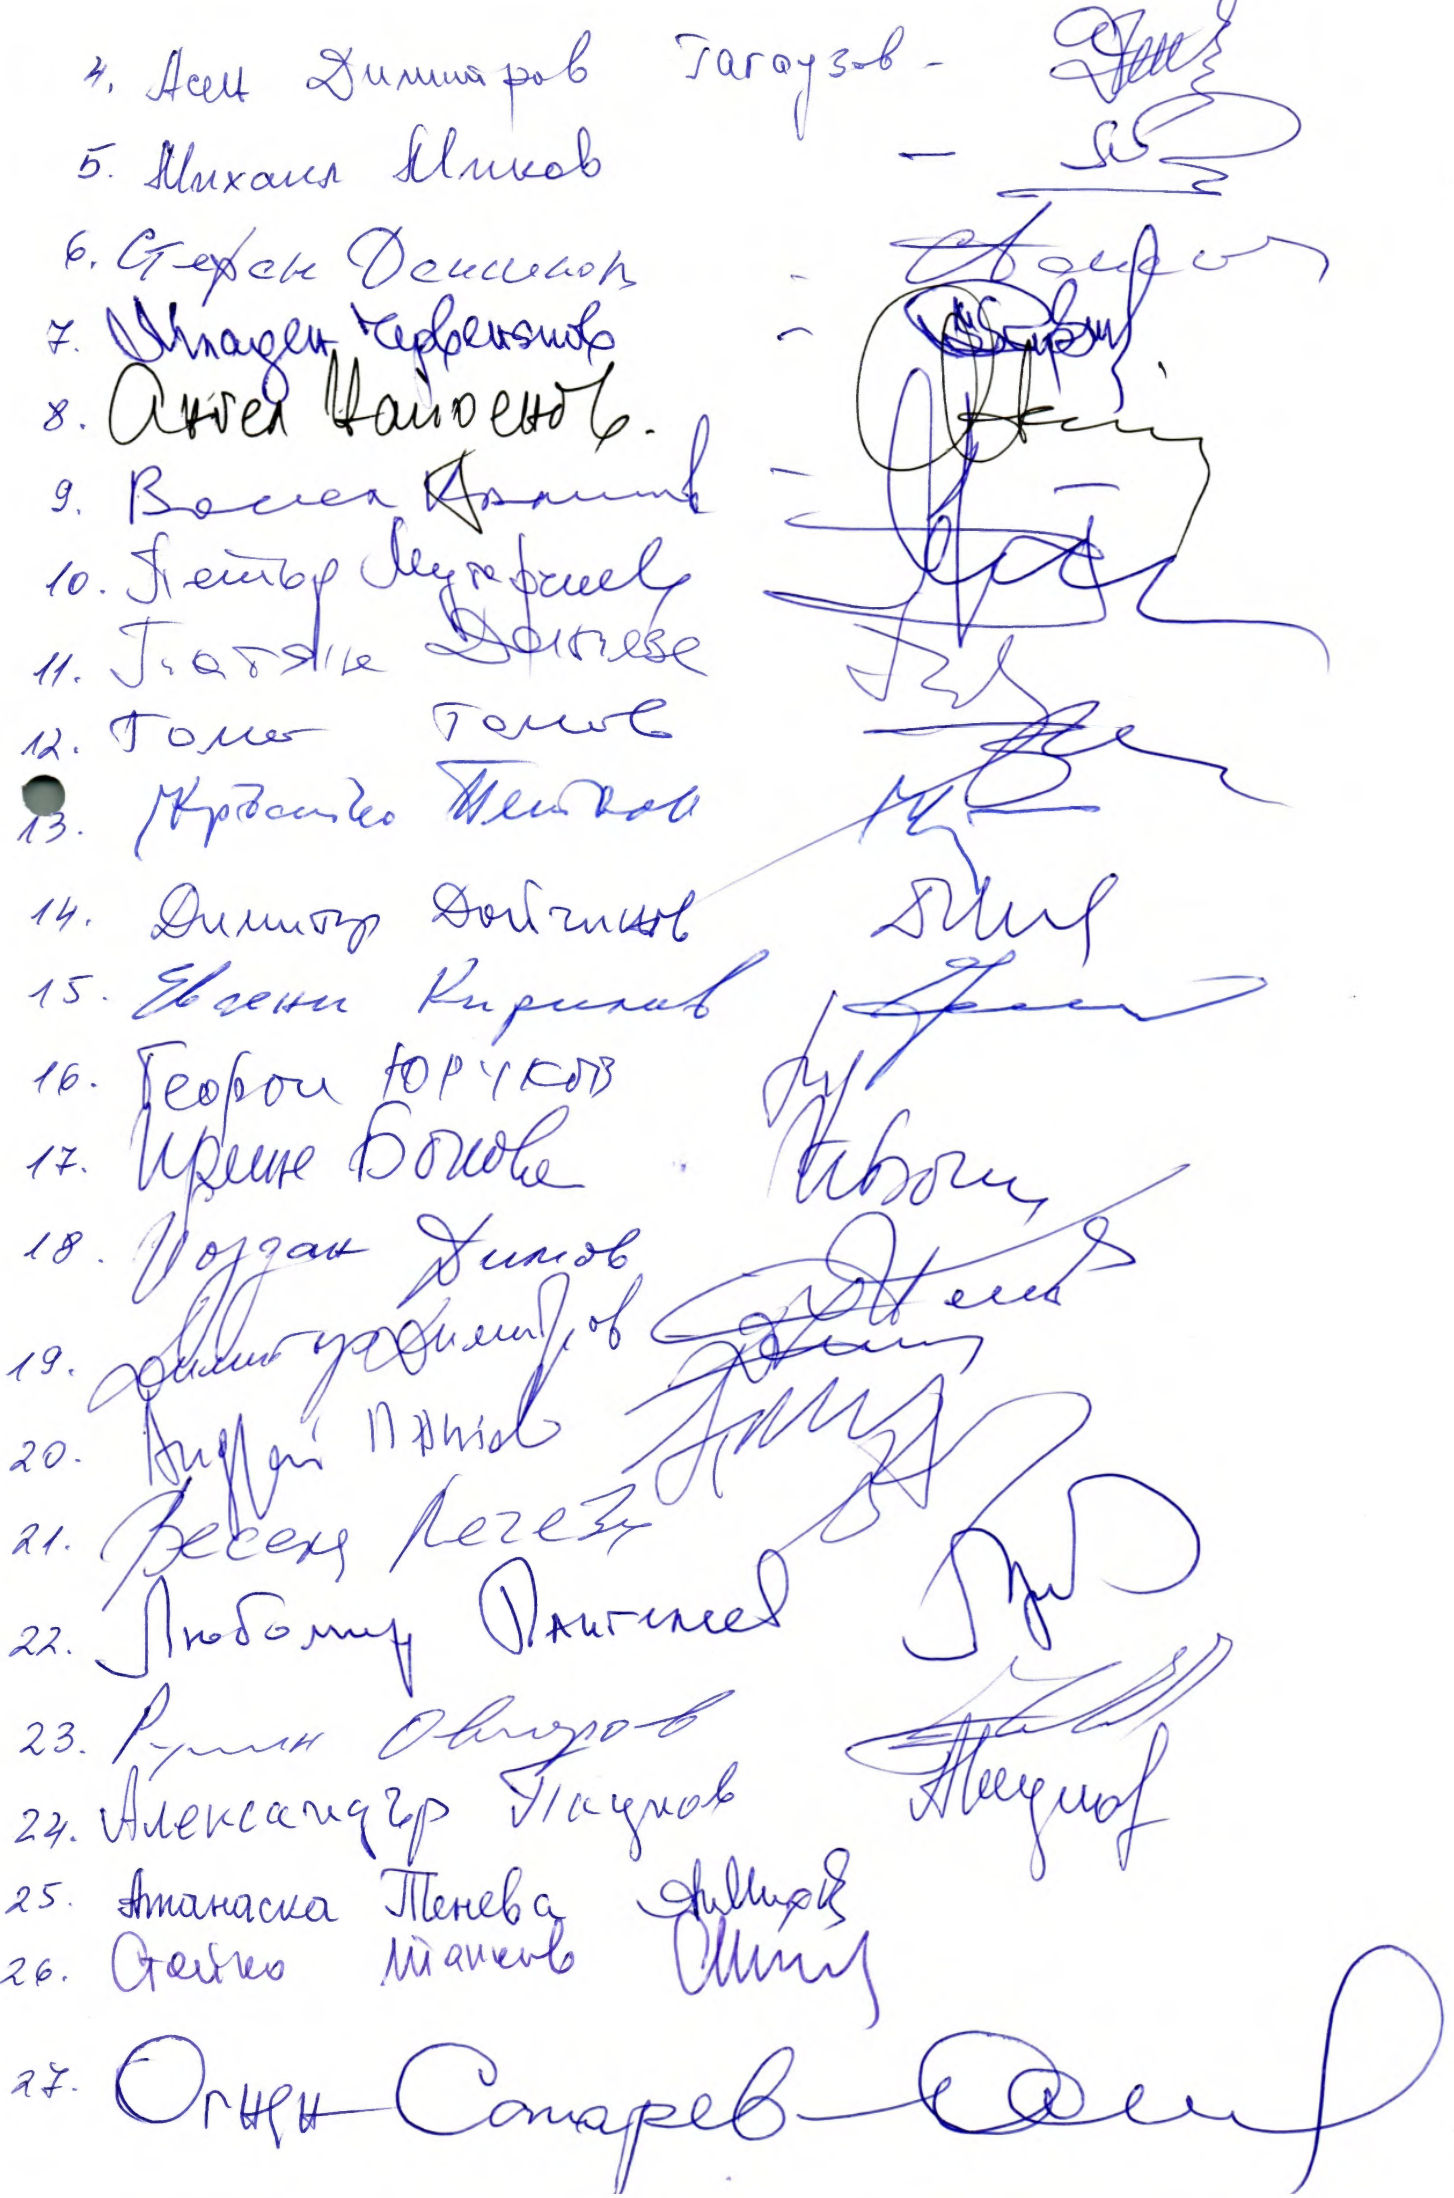 4. Асен Димитров Гагаузов -
5. Михаил Миков -
6. Стефан Данаилов -
7. Младен Червеняков -
8. Ангел Найденов.
9. Васил -
10. Петър Мутафчиев
11. Татяна Дончева
12. Тома Томов
13. Кръстьо Петков
14. Димитър Дойчинов
15. Евгени Кирилов
16. Георги Юруков
17. Ирина Бокова
18. Йордан Димов
19. Димитър Димитров
20. Андрей Пантев
21. Весела Лечева
22. Любомир Пантилеев
23. Румен Овчаров
24. Александър Паунов
25. Атанаска Тенева
26. Стойко Танков
27. Огнян Сапарев